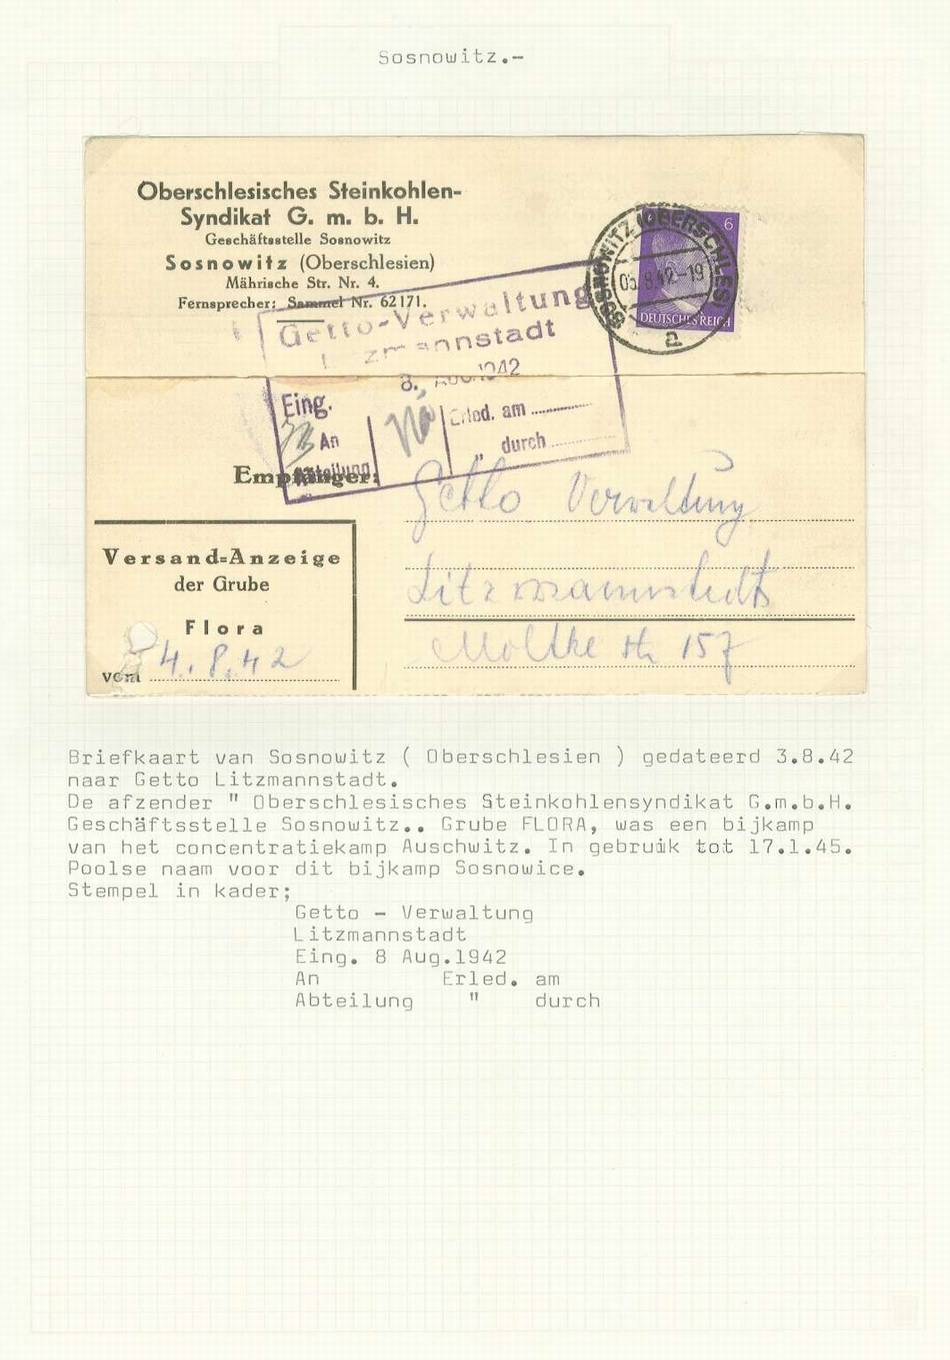 Sosnowitz.-
Oberschlesisches Steinkohlen-
Syndikat G. m. b. H.
Geschäftsstelle Sosnowitz
Sosnowitz (Oberschlesien)
Mährische Str. Nr. 4.
Fernsprecher: Sammel Nr. 62171.
SOSNOWITZ (OBERSCHLES)
8.42-19
a
6
DEUTSCHES REICH
Getto-Verwaltung
Litzmannstadt
8. AUG. 1942
Eing.
An
Abteilung
Erled. am
" durch
Empfänger:
Getto Verwaltung
Litzmannstadt
Moltke str 157
Versand=Anzeige
der Grube
Flora
vom 4.8.42
Briefkaart van Sosnowitz ( Oberschlesien ) gedateerd 3.8.42
naar Getto Litzmannstadt.
De afzender " Oberschlesisches Steinkohlensyndikat G.m.b.H.
Geschäftsstelle Sosnowitz.. Grube FLORA, was een bijkamp
van het concentratiekamp Auschwitz. In gebruik tot 17.1.45.
Poolse naam voor dit bijkamp Sosnowice.
Stempel in kader;
Getto - Verwaltung
Litzmannstadt
Eing. 8 Aug.1942
An Erled. am
Abteilung " durch